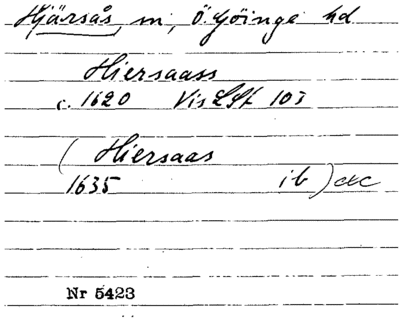 Hjärsås, m, Ö. Göinge hd
Hiersaass
c. 1620 VisLSk 103
( Hiersaas
1635 ib ) etc
Nr 5423